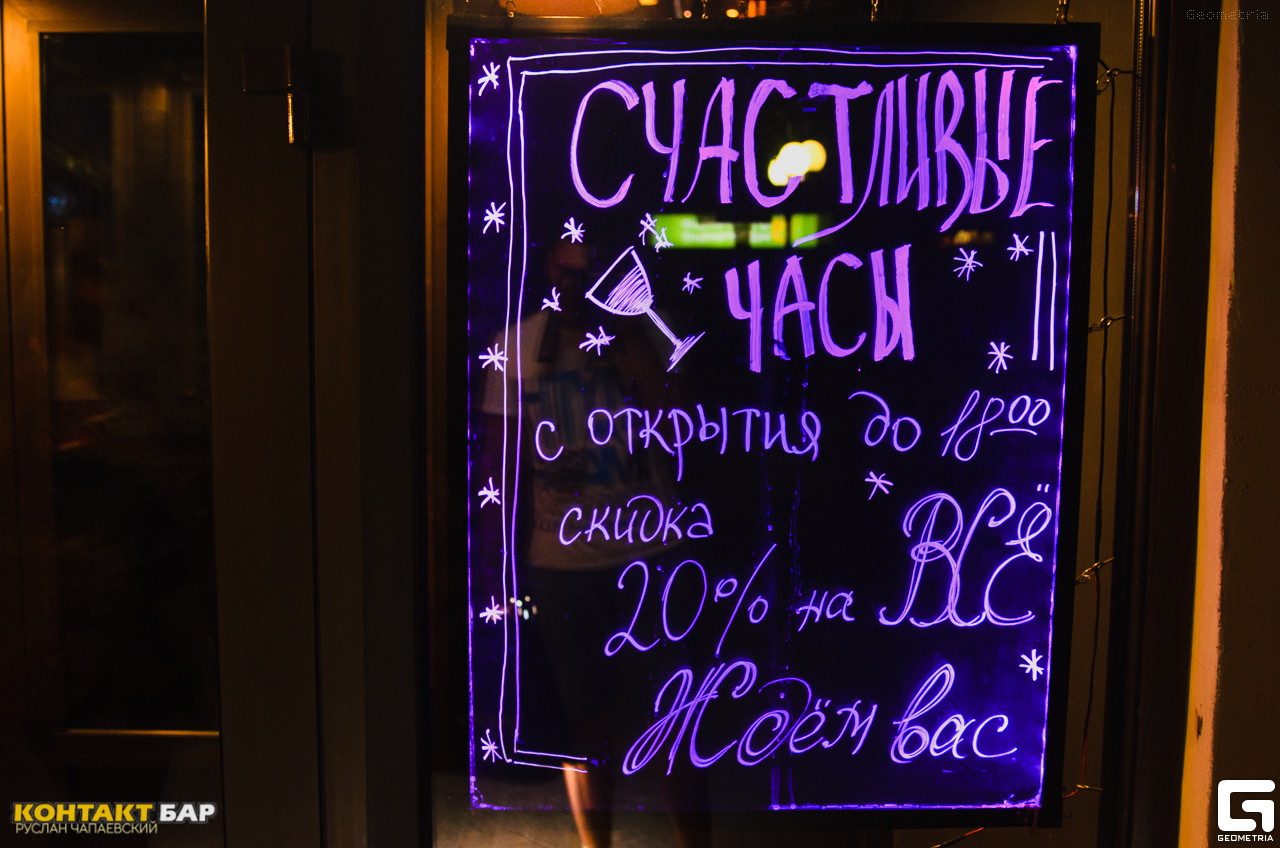 Geometria
СЧАСТЛИВЫЕ
ЧАСЫ
с открытия до 18 00
скидка
20% на ВСЁ
Ждём вас
КОНТАКТ БАР
РУСЛАН ЧАПАЕВСКИЙ
GEOMETRIA